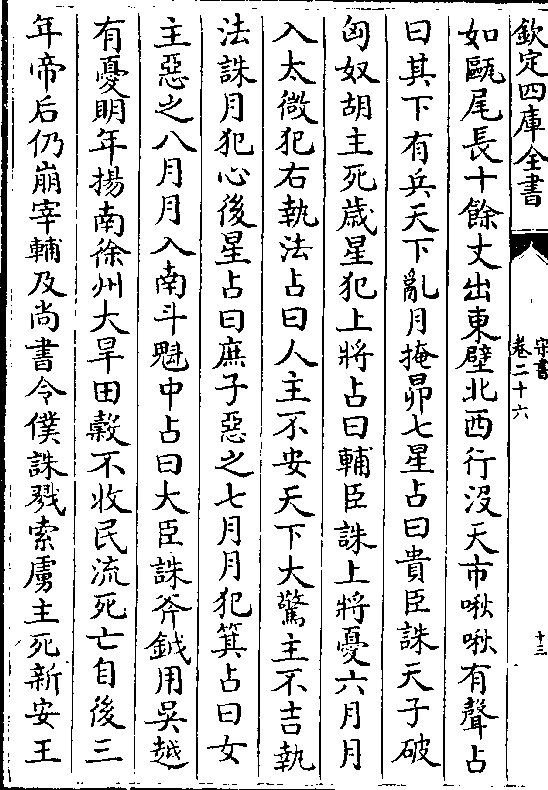 欽定四庫全書
宋書
卷二十六
十三
如甌尾長十餘丈出東壁北西行沒天市啾啾有聲占
曰其下有兵天下亂月掩昴七星占曰貴臣誅天子破
匈奴胡主死歲星犯上將占曰輔臣誅上將憂六月月
入太微犯右執法占曰人主不安天下大驚主不吉執
法誅月犯心後星占曰庶子惡之七月月犯箕占曰女
主惡之八月月入南斗魁中占曰大臣誅斧鉞用吳越
有憂明年揚南徐州大旱田穀不收民流死亡自後三
年帝后仍崩宰輔及尚書令僕誅戮索虜主死新安王